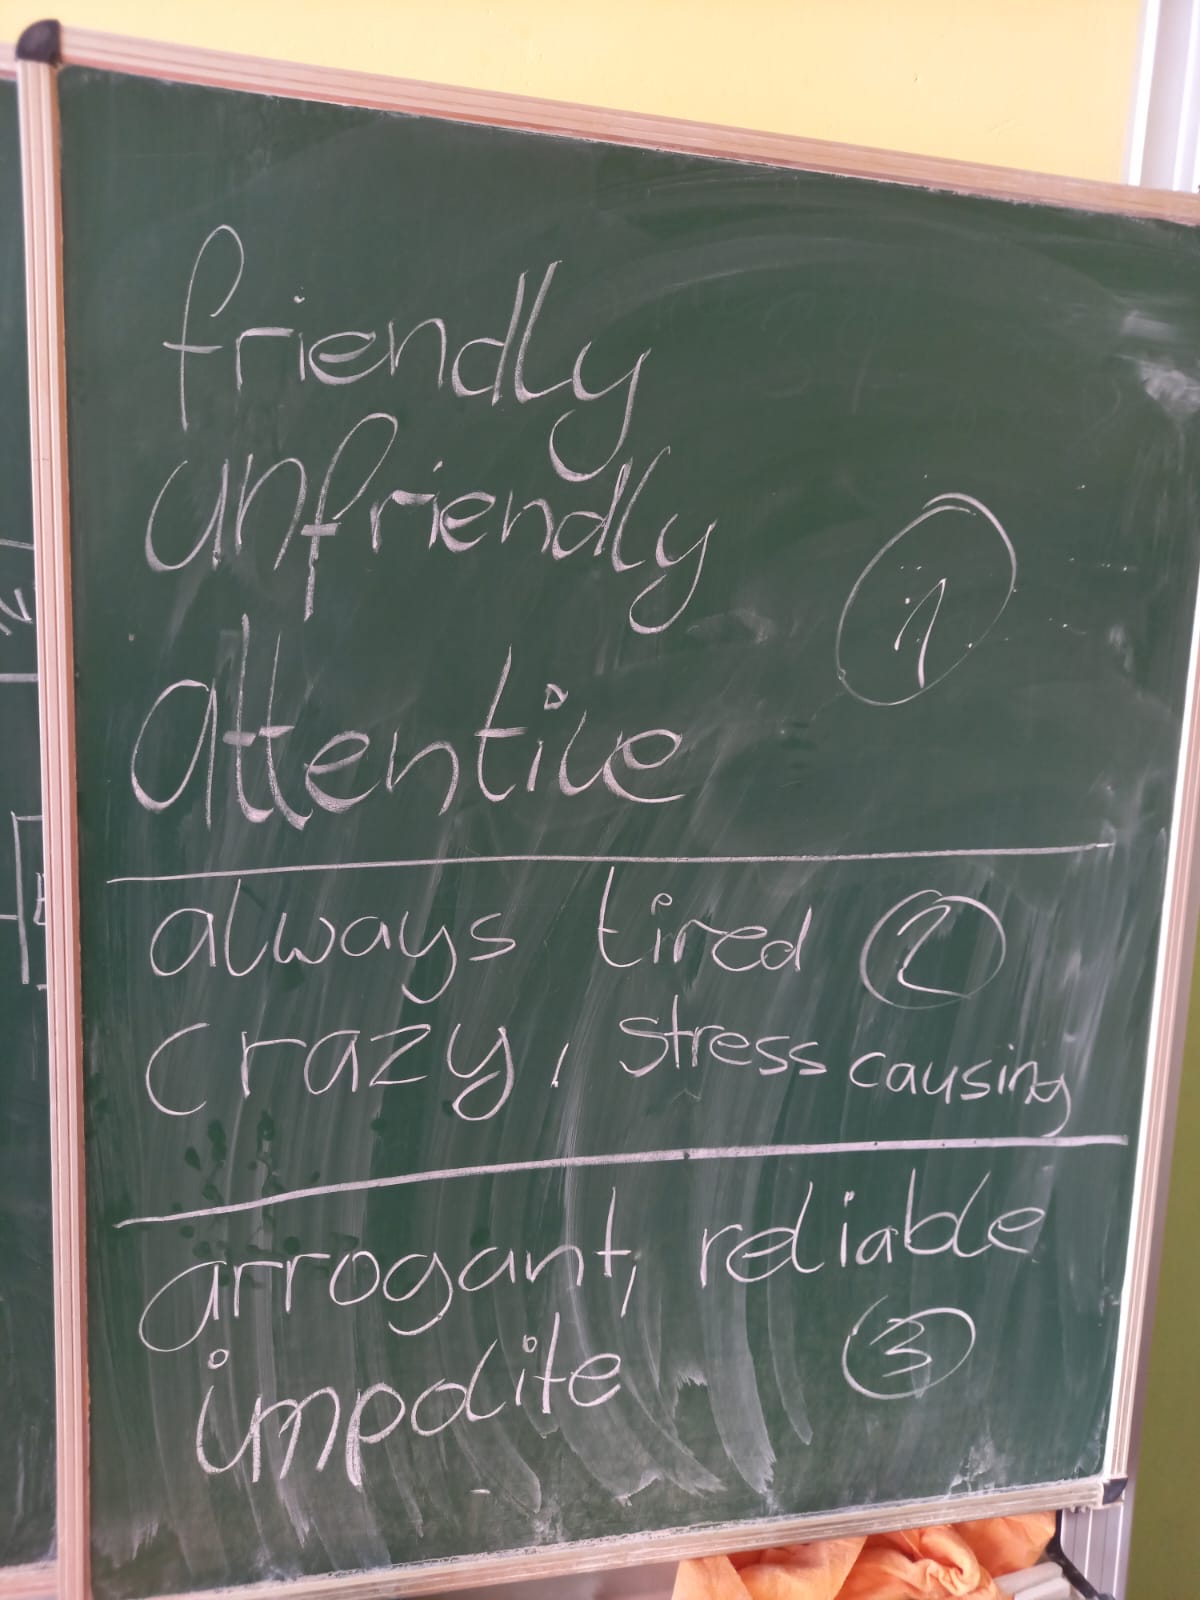 friendly
unfriendly
1
Attentive
always tired 2
crazy, stress causing
arrogant, reliable
impolite 3